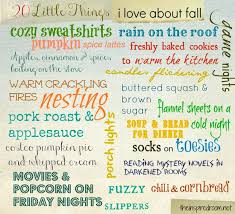 20 Little Things i love about fall
cozy sweatshirts
rain on the roof
dance nights
pumpkin spice lattes
freshly baked cookies
to warm the kitchen
Apples, cinnamon & spices
boiling on the stove
candles flickering
WARM CRACKLING
FIRES
nesting
buttered squash &
brown sugar
flannel sheets on a
cold night
porch lights
pork roast &
applesauce
SOUP & BREAD
FOR DINNER
socks on toesies
costco pumpkin pie
and whipped cream
READING MYSTERY NOVELS IN
DARKENED ROOMS
MOVIES &
POPCORN ON
FRIDAY NIGHTS
FUZZY
SLIPPERS
chili & cornbread
theinspiredroom.net